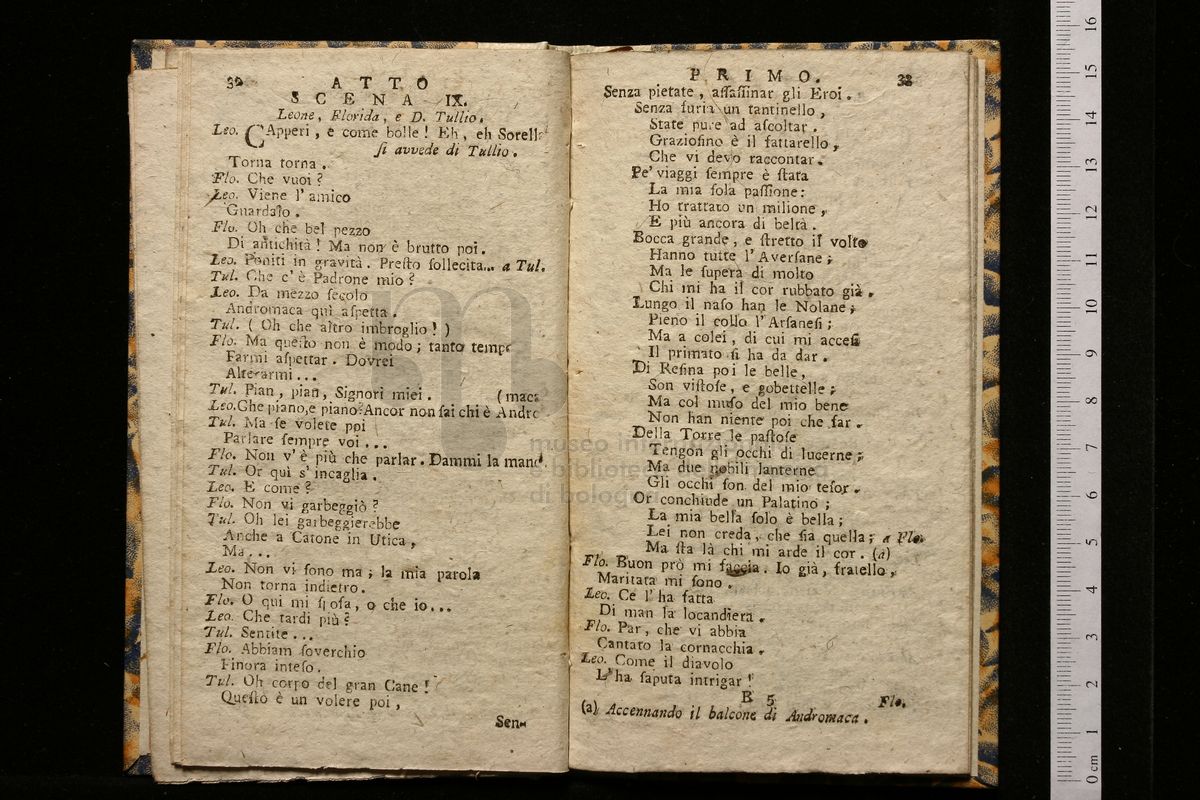 32 ATTO
SCENA IX.
Leone, Florida, e D. Tullio.
Leo. CApperi, e come bolle! Eh, eh Sorella
si avvede di Tullio.
Torna torna.
Flo. Che vuoi?
Leo. Viene l'amico
Guardalo.
Flo. Oh che bel pezzo
Di antichità! Ma non è brutto poi.
Leo. Poniti in gravità. Presto sollecita... a Tul.
Tul. Che c'è Padrone mio?
Leo. Da mezzo secolo
Andromaca quì aspetta.
Tul. (Oh che altro imbroglio!)
Flo. Ma questo non è modo; tanto tempo
Farmi aspettar. Dovrei
Alterarmi...
Tul. Pian, pian, Signori miei. (maca
Leo. Che piano, e piano? Ancor non sai chi è Andro
Tul. Ma se volete poi
Parlare sempre voi...
Flo. Non v'è più che parlar. Dammi la mano.
Tul. Or quì s'incaglia.
Leo. E come?
Flo. Non vi garbeggiò?
Tul. Oh lei garbeggierebbe
Anche a Catone in Utica,
Ma...
Leo. Non vi sono ma; la mia parola
Non torna indietro.
Flo. O quì mi sposa, o che io...
Leo. Che tardi più?
Tul. Sentite...
Flo. Abbiam soverchio
Finora inteso.
Tul. Oh corpo del gran Cane!
Questo è un volere poi,
Sen-
PRIMO. 33
Senza pietate, assassinar gli Eroi.
Senza furia un tantinello,
State pure ad ascoltar.
Graziosino è il fattarello,
Che vi devo raccontar.
Pe' viaggi sempre è stata
La mia sola passione:
Ho trattato un milione,
E più ancora di beltà.
Bocca grande, e stretto il volto
Hanno tutte l'Aversane;
Ma le supera di molto
Chi mi ha il cor rubbato già.
Lungo il naso han le Nolane;
Pieno il collo l'Arsanesi;
Ma a colei, di cui mi accesi
Il primato si ha da dar.
Di Resina poi le belle,
Son vistose, e gobettelle;
Ma col muso del mio bene
Non han niente poi che far.
Della Torre le pastose
Tengon gli occhi di lucerne;
Ma due nobili lanterne
Gli occhi son del mio tesor.
Or conchiude un Palatino;
La mia bella solo è bella;
Lei non creda, che sia quella; a Flo.
Ma sta là chi mi arde il cor. (a)
Flo. Buon prò mi faccia. Io già, fratello,
Maritata mi sono.
Leo. Ce l'ha fatta
Di man la locandiera.
Flo. Par, che vi abbia
Cantato la cornacchia.
Leo. Come il diavolo
L'ha saputa intrigar!
B 5 Flo.
(a) Accennando il balcone di Andromaca.
museo
biblioteca
di bologna
0 cm 1 2 3 4 5 6 7 8 9 10 11 12 13 14 15 16